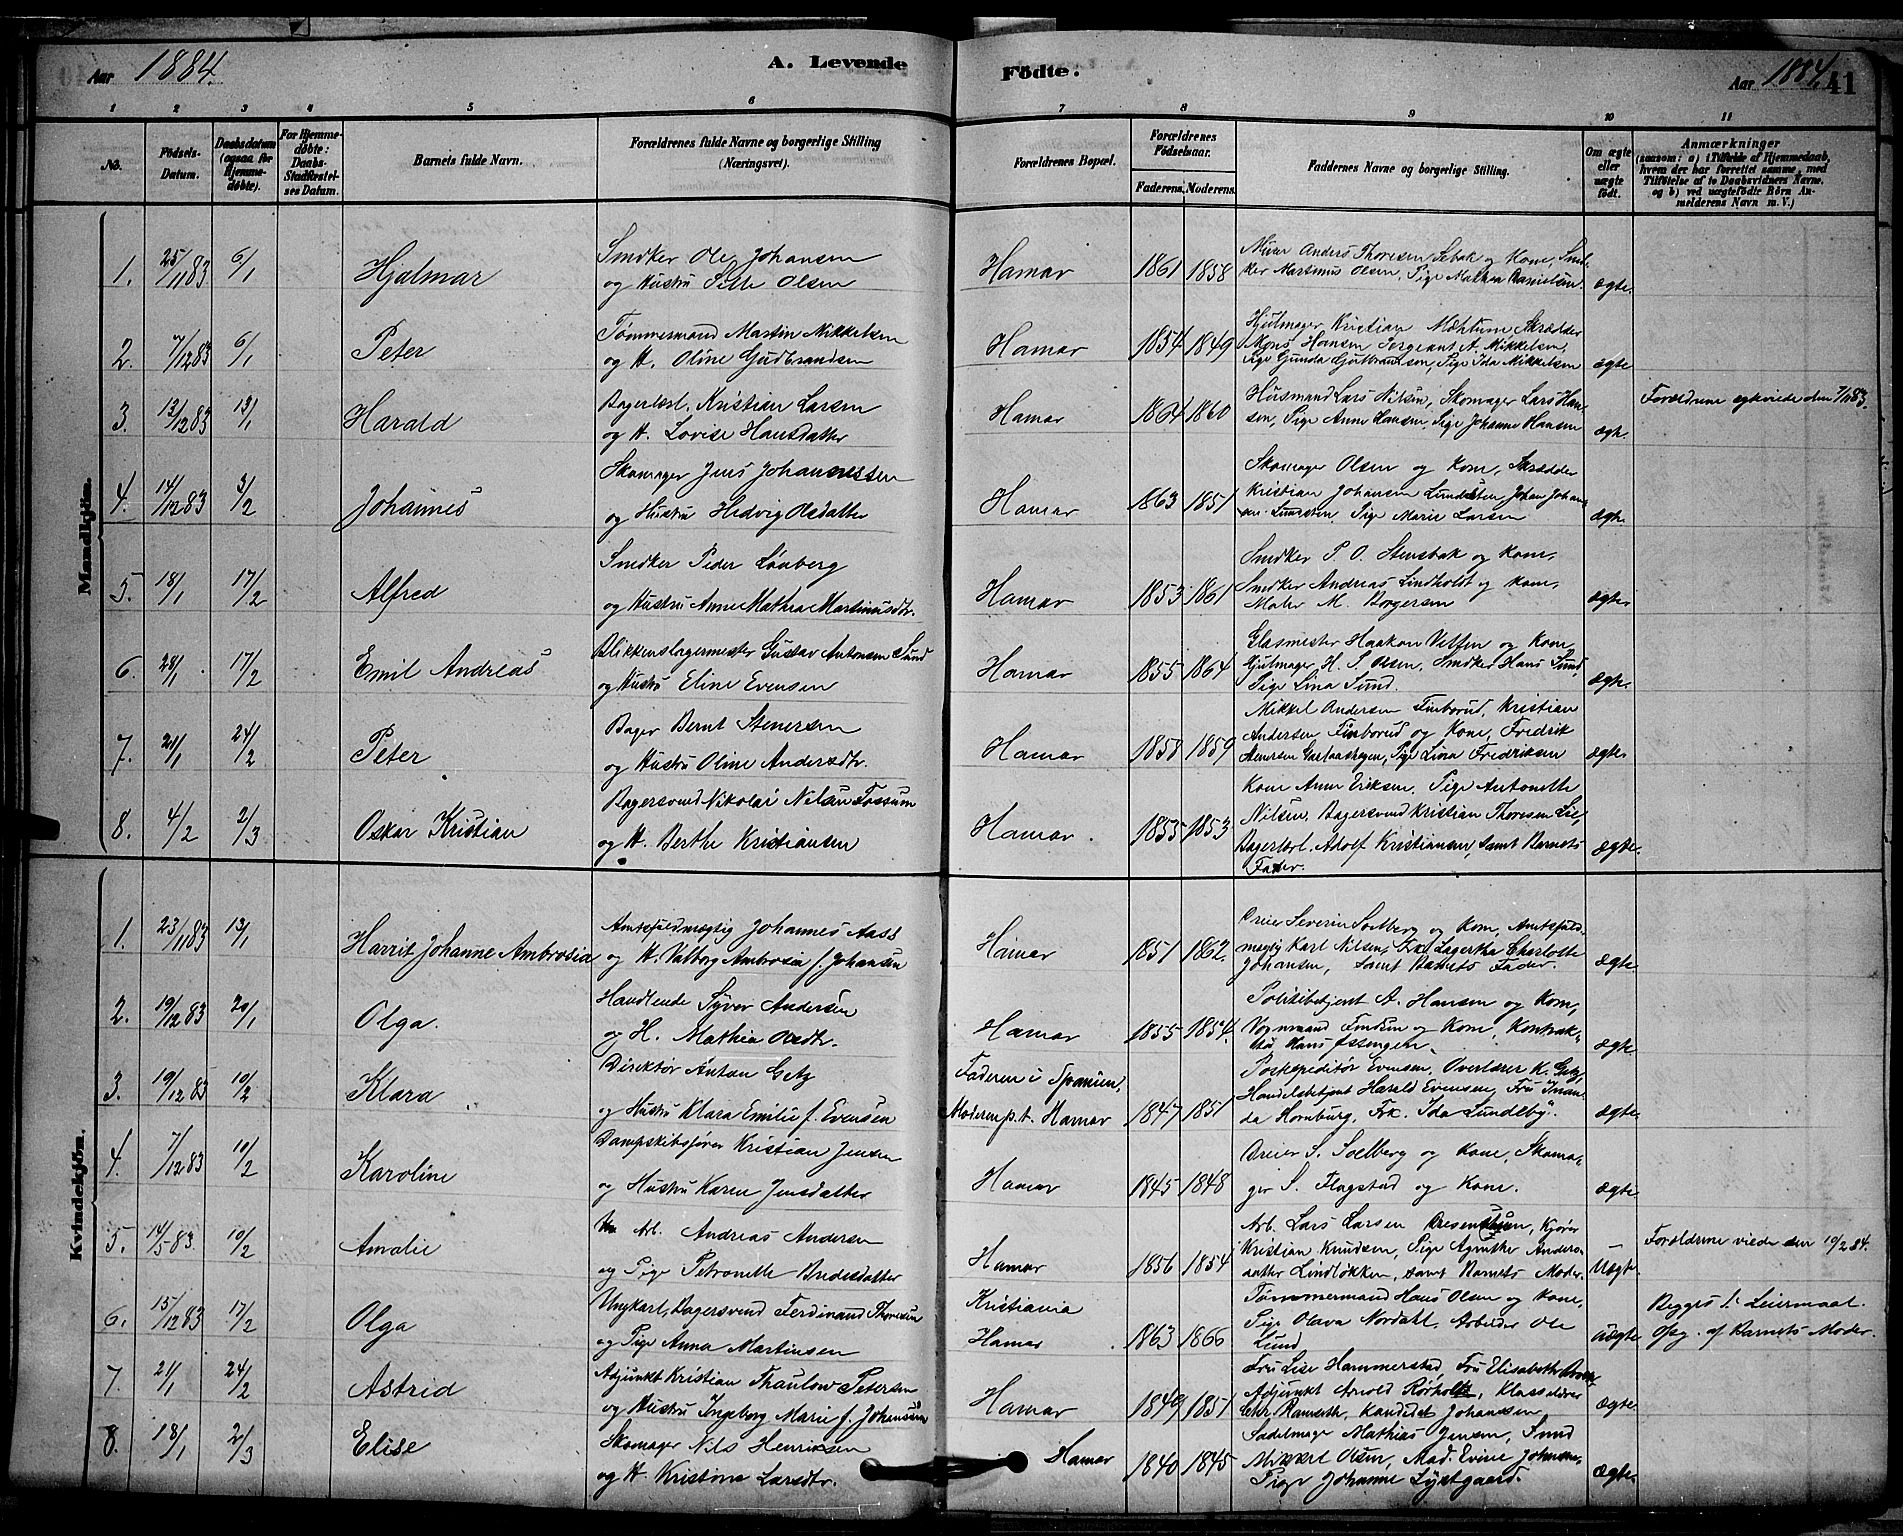 Aar 1884.
A. Levende Födte.
Aar 1884.
41
1 2 3 4 5 6 7 8 9 10 11
No.
Födsels-Datum.
Daabsdatum (ogsaa for Hjemmedöbte).
For Hjemmedöbte: Daabs-Stadfæstelses Datum.
Barnets fulde Navn.
Forældrenes fulde Navne og borgerlige Stilling (Næringsvei).
Forældrenes Bopæl.
Forældrenes Födselsaar.
Faderens. Moderens.
Faddernes Navne og borgerlige Stilling.
Om ægte eller uægte födt.
Anmærkninger
(saasom: a) i Tilfælde af Hjemmedaab, hvem der har forrettet samme, med Tilföielse af to Daabsvidners Navne, og b) ved uægtefödte Börn Anmelderens Navn m. V.)
Mandkjön.
1. 25/11 83 6/1 Hjalmar
Snedker Ole Johansen
og Hustru Sille Olsen
Hamar 1861 1858
Murer Anders Thoresen Sebak og Kone, Sned-
ker Martinus Olsen, Pige Mathea Danielsen.
ægte.
2. 7/12 83 6/1 Peter
Tømmermand Martin Mikkelsen
og H. Oline Gudbrandsen
Hamar 1854 1849
Hjulmager Kristian Mæhlum Skrædder
Mons Hansen Sergeant A. Mikkelsen,
Pige Gunda Gutbrandsen, Pige Ida Mikkelsen
ægte
3. 12/12 83 13/1 Harald
Bagerlærl. Kristian Larsen
og H. Lovise Hansdatter
Hamar 1864 1860
Husmand Lars Nilsen, Skomager Lars Han-
sen, Pige Anne Hansen, Pige Johanne Hansen
ægte.
Forældrene egteviede den 7/11 83.
4. 14/12 83 3/2 Johannes
Skomager Jens Johannessen
og Hustru Hedvig Olsdatter
Hamar 1863 1851
Skomager Olsen og Kone, Skrædder
Kristian Johansen Lundsten, Johan Johan-
sen Lundsten, Pige Marie Larsen
ægte.
5. 18/1 17/2 Alfred
Snedker Peder Lönberg
og Hustru Anne Mathea Martinusdtr.
Hamar 1853 1861
Snedker P. O. Stensbak og Kone,
Snedker Andreas Lindholdt og Kone,
Maler M. Borgersen
ægte
6. 28/1. 17/2 Emil Andreas
Blikkenslagermester Gustav Antonsen Sund
og Hustru Eline Evensen
Hamar 1855 1864
Glasmester Haakon Vetten og Kone,
Hjulmager H. S. Olsen, Snedker Hans Sund,
Pige Lina Sund.
ægte.
7. 21/1 24/2 Peter
Bager Bernt Stenersen
og Hustru Oline Andersdtr.
Hamar 1858 1859
Mikkel Andersen Finborud, Kristian
Andersen Finborud og Kone, Fredrik
Stenersen Garlaashagen, Pige Lina Fredriksen
ægte.
8. 4/2 2/3 Oskar Kristian
Bagersvend Nikolai Nilsen Fossum
og H. Berthe Kristiansen
Hamar. 1855 1853
Kone Anne Eriksen, Pige Antonette
Nilsen, Bagersvend Kristian Thoresen Lie,
Bagerlærl. Adolf Kristiansen, samt Barnets
Fader.
ægte.
Kvindekjön.
1. 23/11 83 13/1 Harrit Johanne Ambrosia
Amtsfuldmægtig Johannes Aass
og H. Valborg Ambrosia f. Johansen
Hamar 1851 1862.
Dreier Severin Soelberg og Kone, Amtsfuld-
mægtig Karl Nilsen, Frk. Lagertha Charlotte
Johansen, samt Barnets Fader.
ægte
2. 19/12 83 20/1 Olga.
Handlende Syver Andersen
og H. Mathia Olsdtr.
Hamar 1855 1854.
Politibetjent A. Hansen og Kone,
Vognmand Knudsen og Kone, Kontrak-
tør Hans Essengen.
ægte
3. 19/12 83 10/2 Klara
Direktör Anton Getz
og Hustru Klara Emilie f. Evensen
Faderen i Spanien,
Moderen p.t. Hamar
1847 1851
Postexpeditör Evensen, Overlærer K. Getz,
Handelsbetjent Harald Evensen, Fru Inan-
da Hornburg, Frk. Ida Lundeby.
ægte
4. 7/12 83 10/2 Karoline
Dampskibsförer Kristian Jensen
og Hustru Karen Jensdatter
Hamar 1845 1848
Dreier S. Soelberg og Kone, Skoma-
ger S. Flagstad og Kone.
ægte
5. 14/5 83. 10/2 Amalie
Arb. Andreas Andersen
og Pige Petronelle Andersdatter
Hamar 1856 1854
Arb. Lars Larsen, Kjører
Kristian Knudsen, Pige Agnethe Anders-
datter Lindløkken, samt Barnets Moder.
Uægte
Forældrene viede den 10/2 84.
6. 15/12 83 17/2 Olga
Ungkarl, Bagersvend Ferdinand Thoresen
og Pige Anna Martinsen
Kristiania
Hamar 1863 1866
Tømmermand Hans Olsen og Kone,
Pige Olava Nordahl, Arbeider Ole
Lund
uægte
Begges 1. Leiermaal.
Opg. af Barnets Moder.
7. 21/1 24/2 Astrid
Adjunkt Kristian Thaulow Petersen
og Hustru Ingeborg Marie f. Johansen
Hamar 1849 1851
Fru Lise Hammerstad, Fru Elisabeth
Adjunkt Arnold Rørholt, Klasselærer
Chr. Ramseth, Kandidat Johansen
ægte
8. 18/1 2/3 Elise
Skomager Nils Henriksen
og H. Kristine Larsdtr.
Hamar 1840 1845
Sadelmager Mathias Jensen, Smed
Mikkel Olsen, Mad. Evine Johnsen,
Pige Johanne Lystgaard.
ægte.